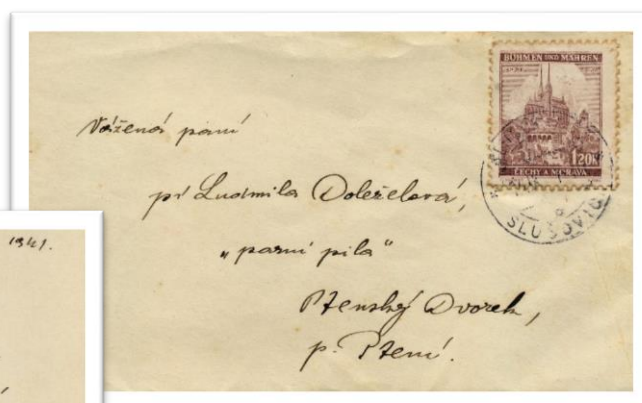 BÖHMEN UND MÄHREN
1.20K
ČECHY A MORAVA
SLUŠOVIC
Vážená paní
pí Ludmila Doleželová,
„parní pila“
Ptenský Dvorek,
p. Ptení.
1941.